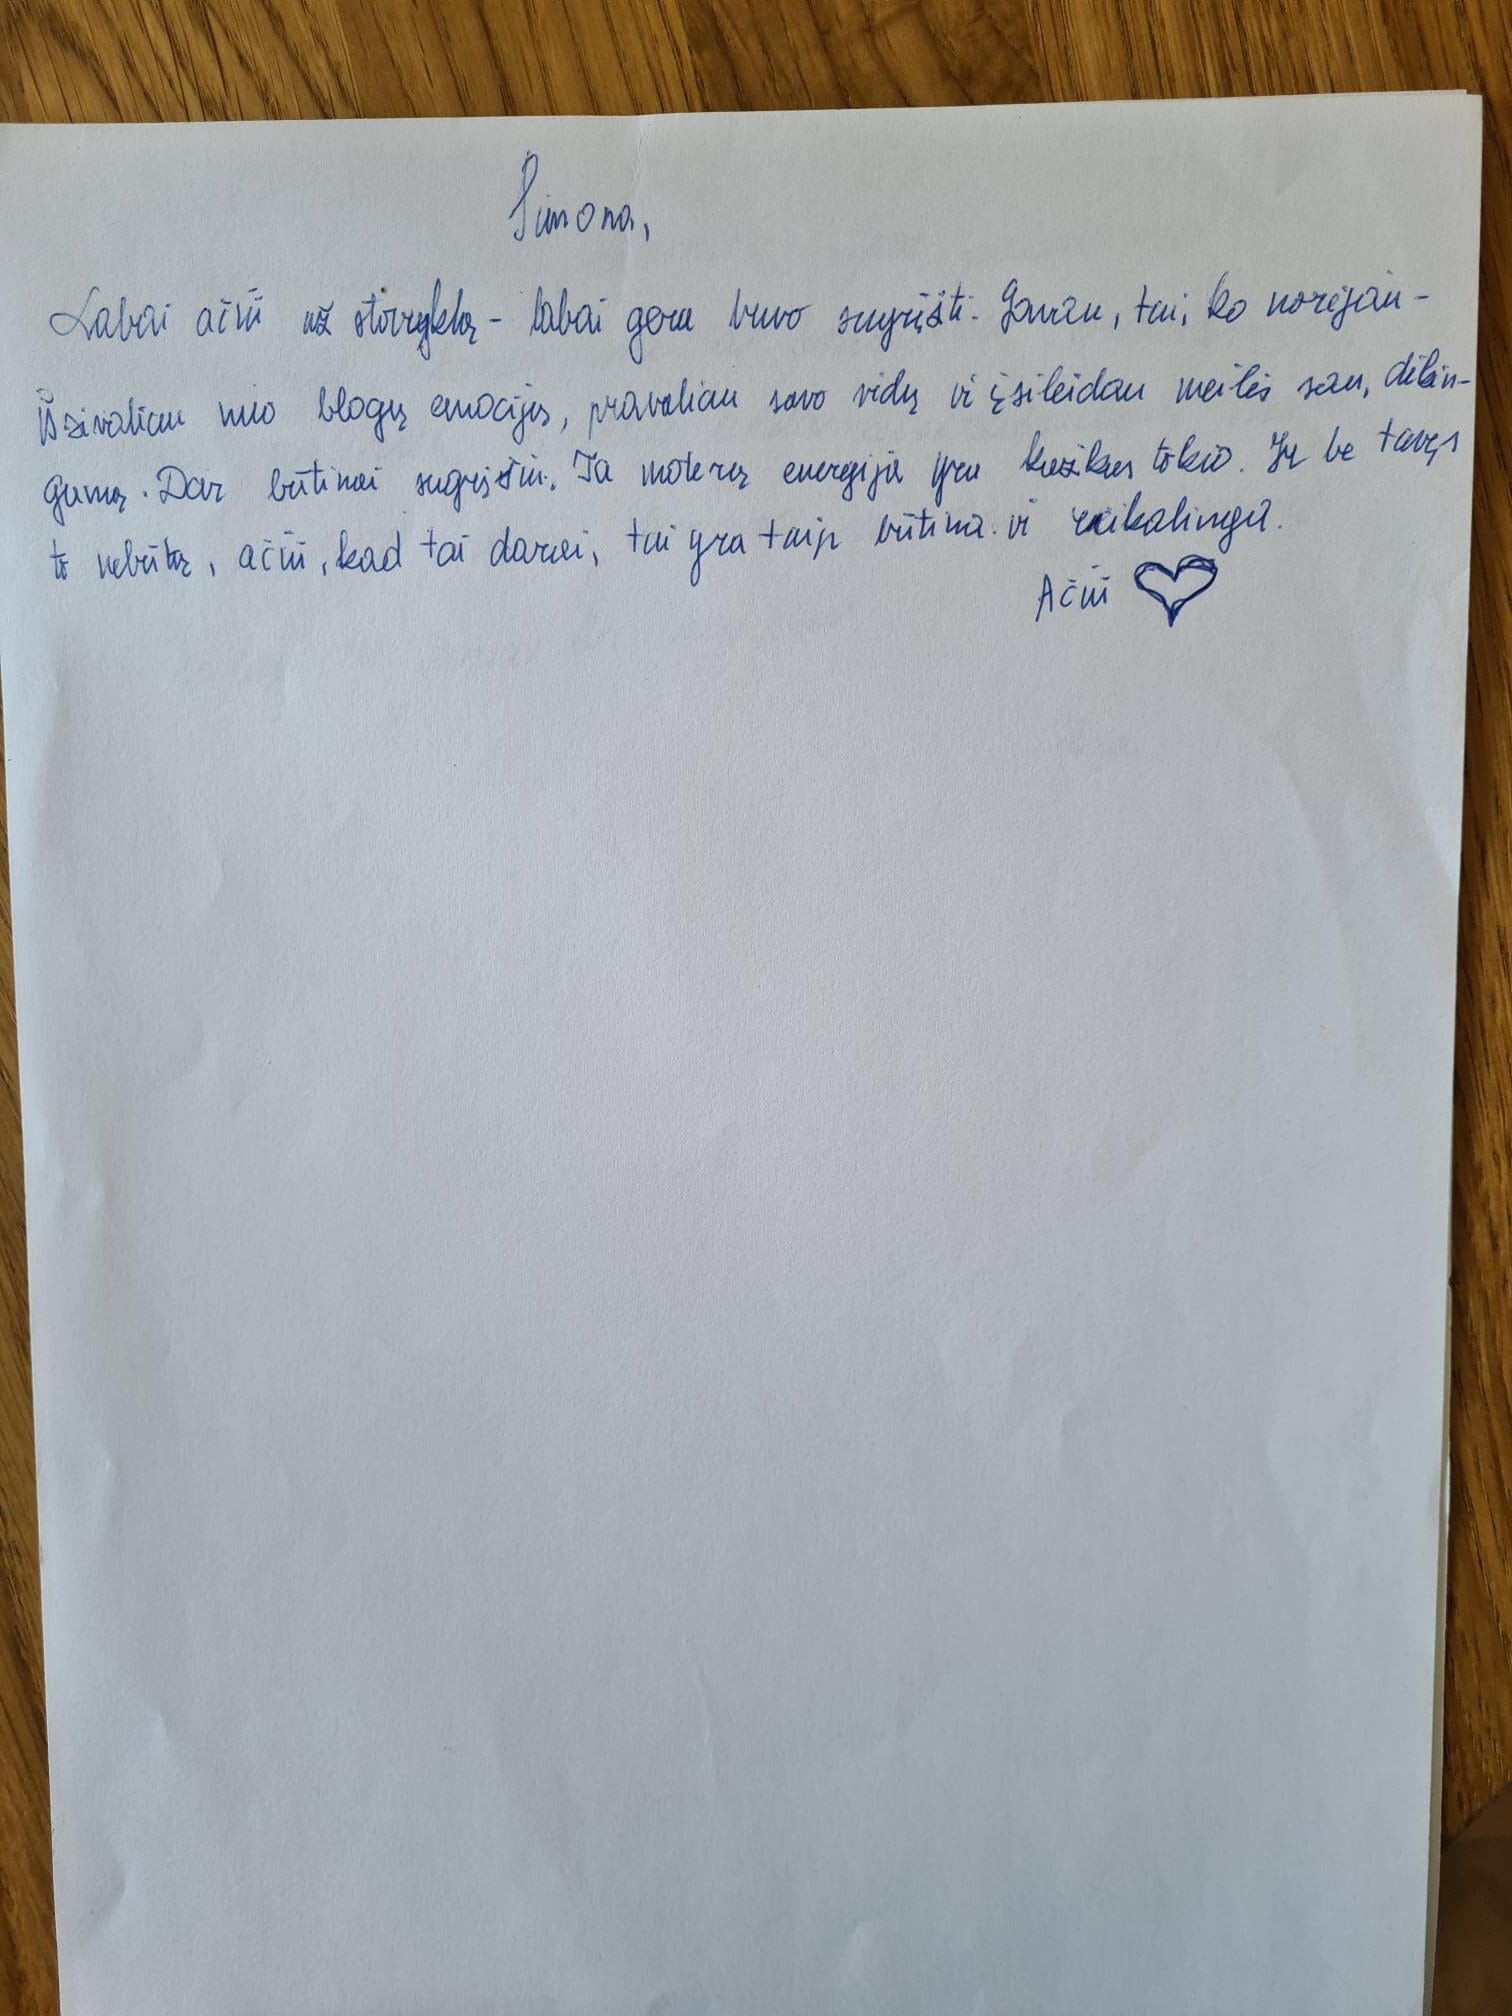 Simona,
Labai ačiū už stovyklą - labai gera buvo sugrįžti. Gavau, tai, ko norėjau -
išsivaliau nuo blogų emocijų, pravaliau savo vidų ir įsileidau meilės sau, dėkin-
gumą. Dar būtinai sugrįšiu. Ta moterų energija yra kažkas tokio. Jų be tavęs
to nebūtų, ačiū, kad tai darai, tai yra taip būtina ir reikalinga.
Ačiū